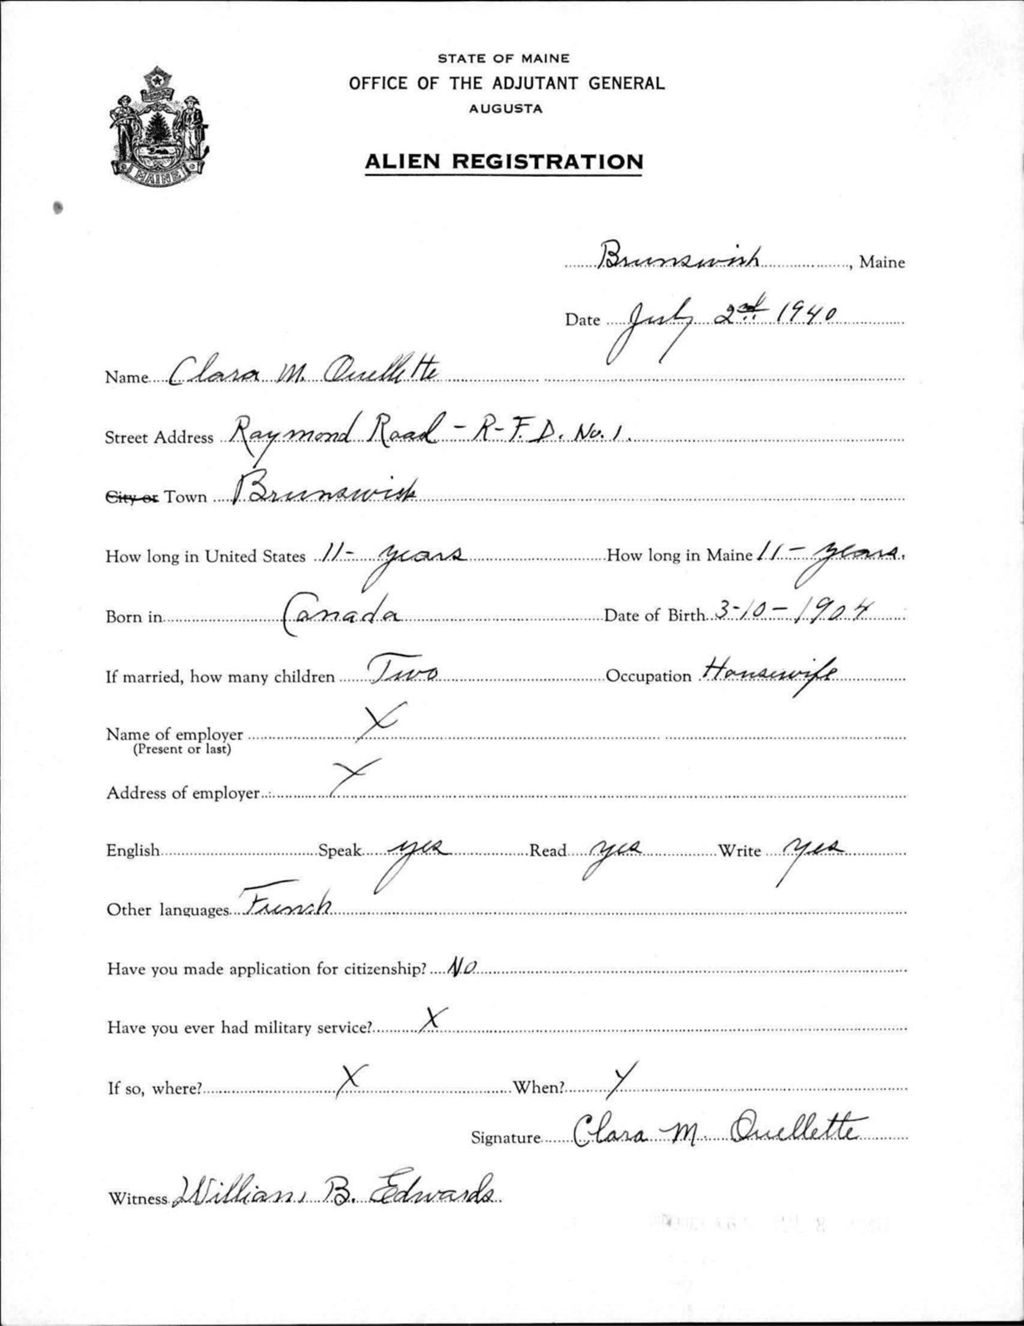 STATE OF MAINE
OFFICE OF THE ADJUTANT GENERAL
AUGUSTA
ALIEN REGISTRATION
MAINE
Brunswick, Maine
Date July 2nd. 1940
Name Clara M. Ouellette
Street Address Raymond Road - R-F.D. No. 1.
City or Town Brunswick
How long in United States 11- years How long in Maine 11- years.
Born in Canada Date of Birth 3-10-1904
If married, how many children Two Occupation Housewife
Name of employer X
(Present or last)
Address of employer X
English Speak yes Read yes Write yes
Other languages French
Have you made application for citizenship? No
Have you ever had military service? X
If so, where? X When? X
Signature Clara M. Ouellette
Witness William B. Edwards